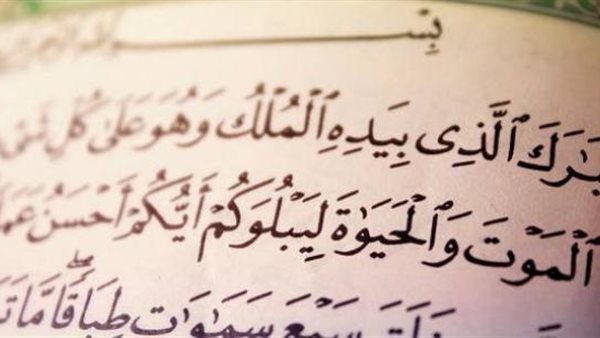 بِسْـــــــ
بَٰرَكَ ٱلَّذِى بِيَدِهِ ٱلْمُلْكُ وَهُوَ عَلَىٰ كُلِّ شَىْ
ٱلْمَوْتَ وَٱلْحَيَوٰةَ لِيَبْلُوَكُمْ أَيُّكُمْ أَحْسَنُ عَمَلً
خَلَقَ سَبْعَ سَمَٰوَٰتٍ طِبَاقًا مَّا تَ